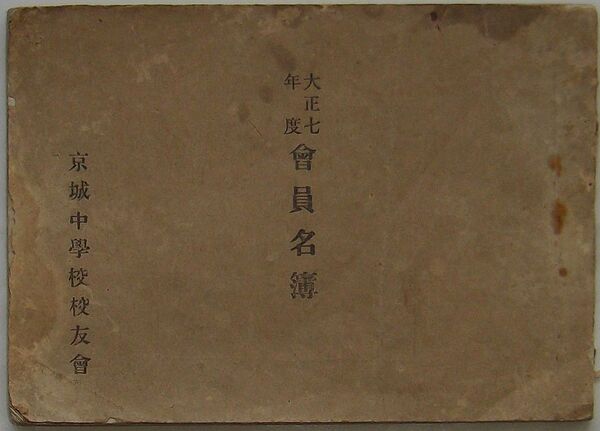 大正七
年度
會員名簿
京城中學校校友會